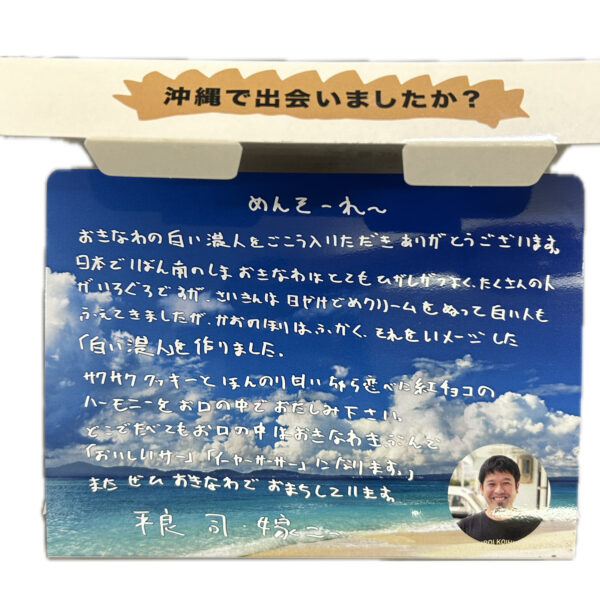 沖縄で出会いましたか？
めんそーれ〜
おきなわの白い濃人をごこう入いただきありがとうございます。
日本で1ばん南のしまおきなわはとてもひがしがつよく、たくさんの人
がいろぐろですが、さいきんは日やけどめクリームをぬって白い人も
ふえてきましたが、かおのほりはふかく、それをいメージした
「白い濃人」を作りました。
サクサククッキーとほんのり甘い紅チョコの
ハーモニーをお口の中でおたしみ下さい。
どこでたべてもお口の中はおきなわきぶんで
「おいしいサー」「イーヤーサーサー」になります。」
またぜひおきなわでおまちしています。
平良 司